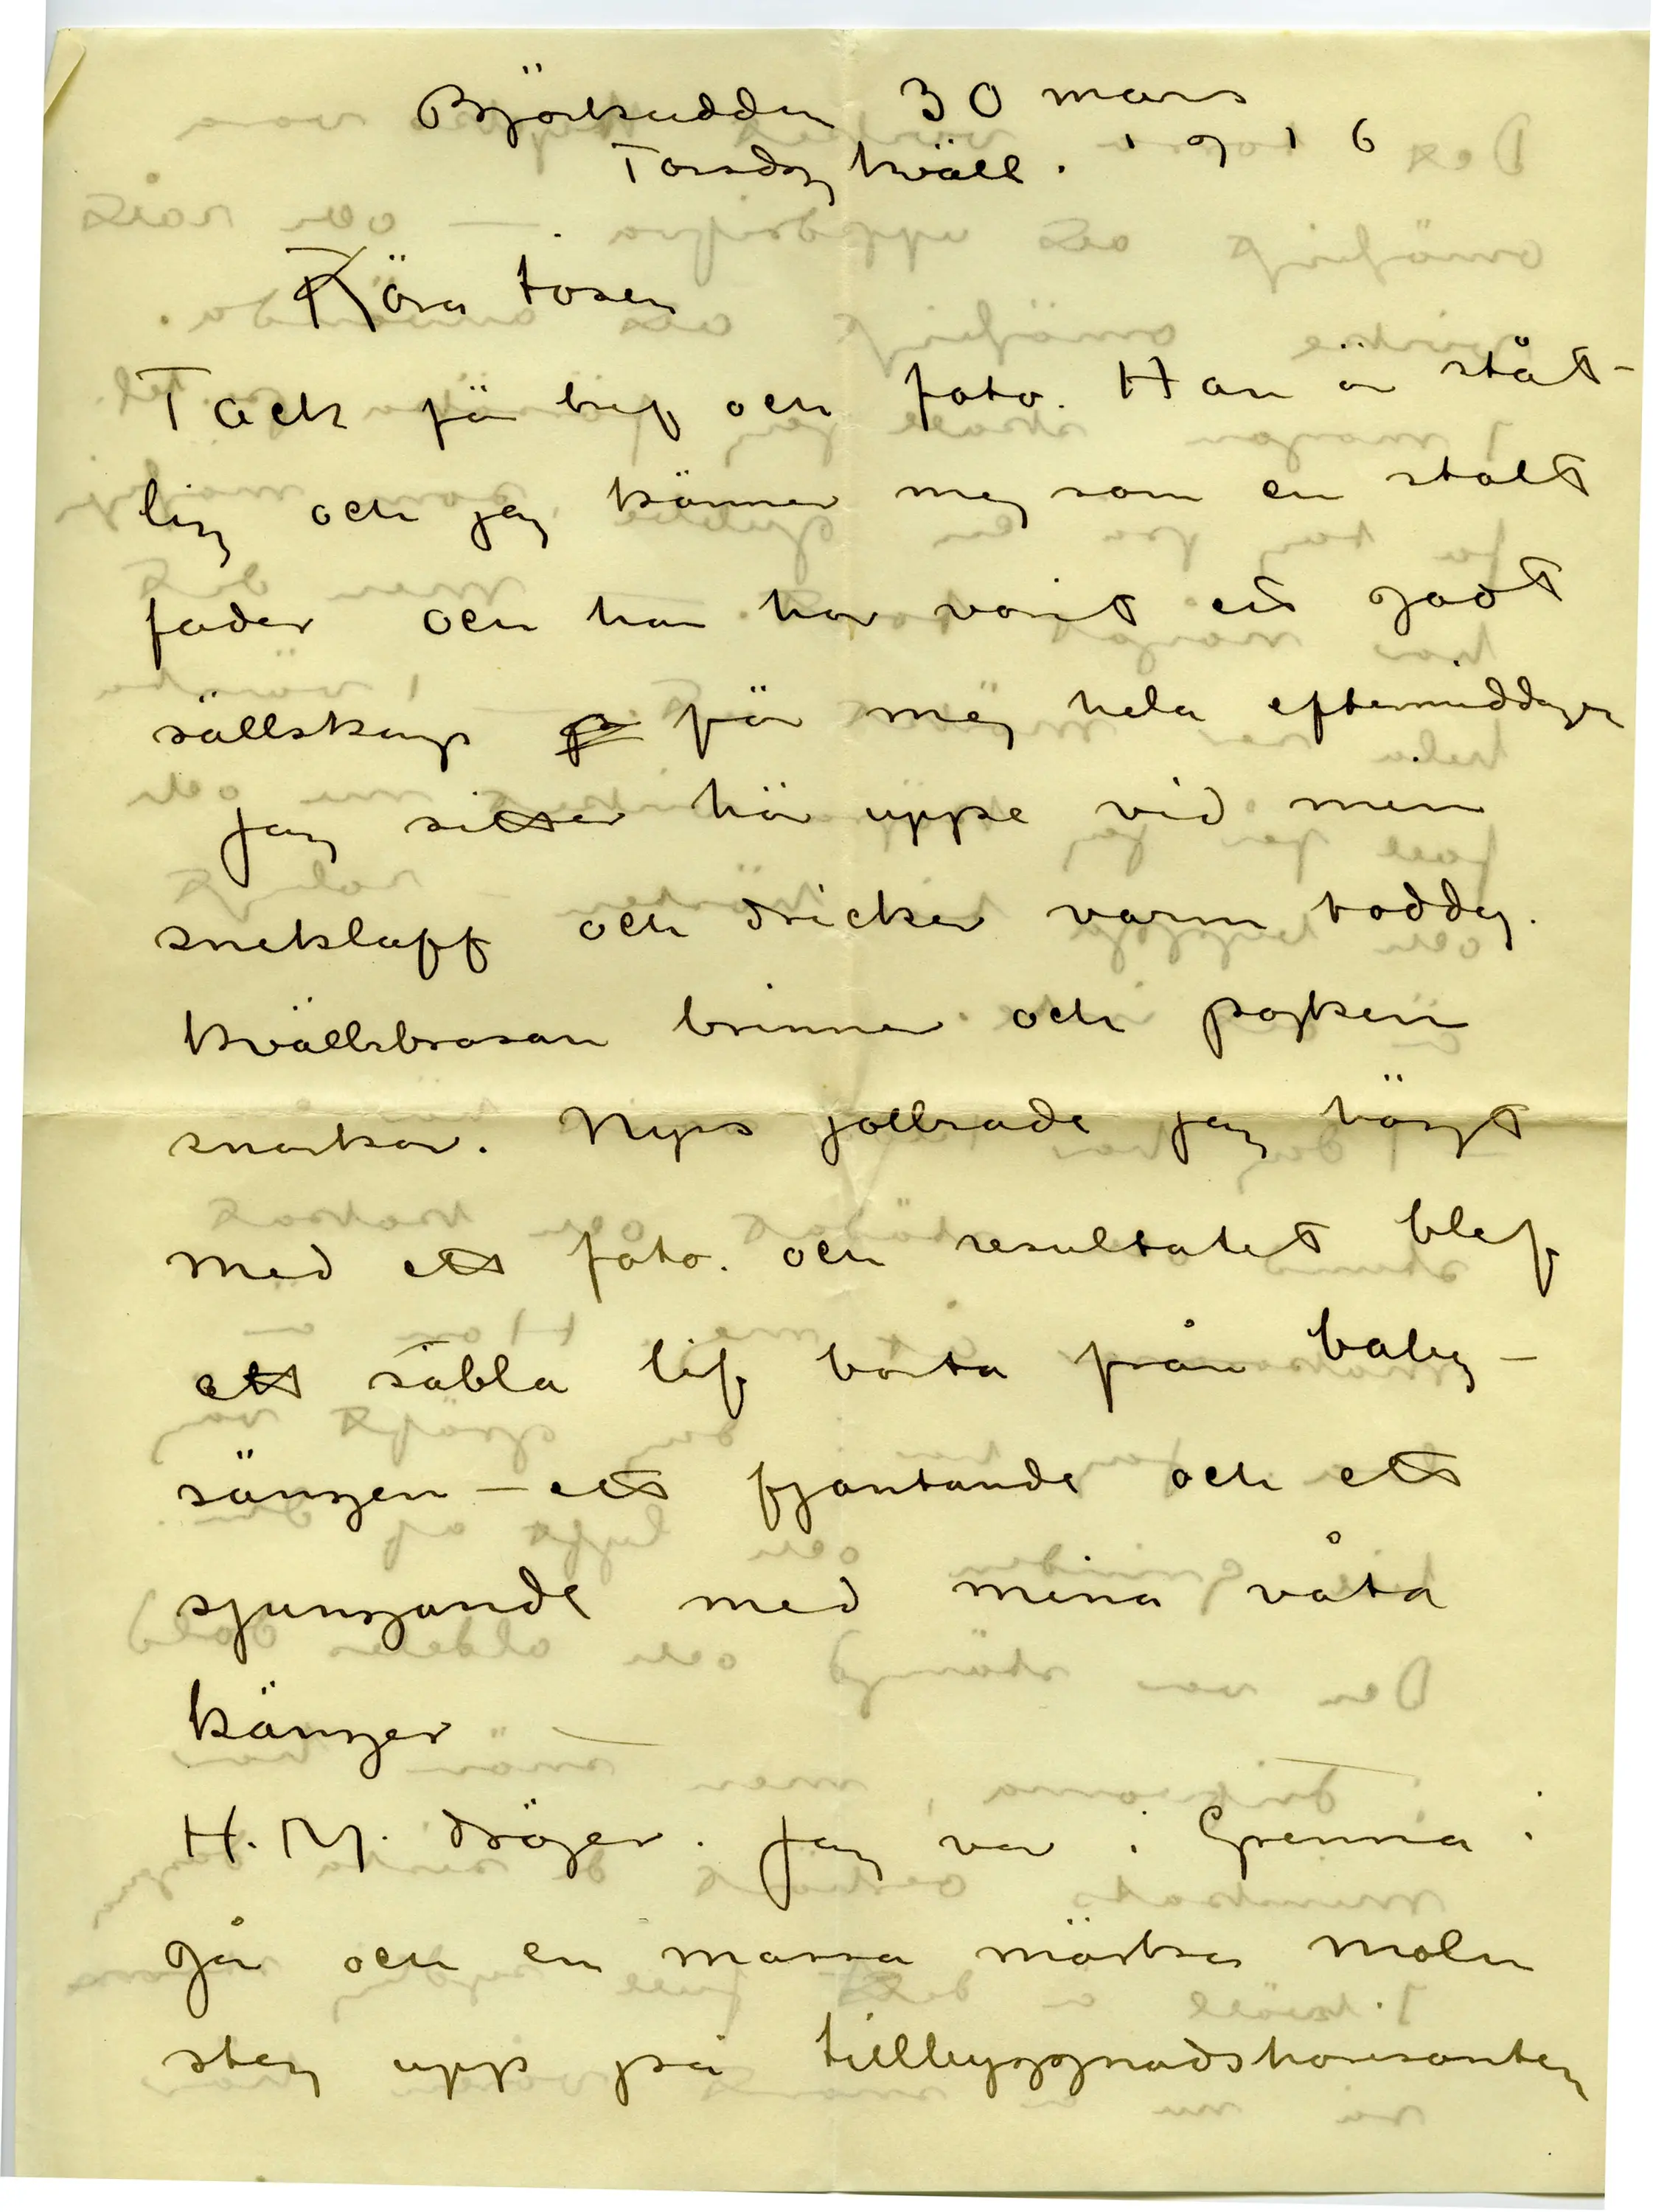 Björkudden 30 mars
Torsdag kväll. 1916
Kära tösen
Tack för bref och foto. Han är ståt-
lig och jag känner mig som en stolt
fader och han har varit ett godt
sällskap för mig hela eftermiddagen
Jag sitter här uppe vid min
sneklaff och dricker varm toddy.
Kvällsbrasan brinner och pojken
snarkar. Nyss jollrade jag högt
med ett foto. och resultatet blef
ett säbla lif borta från baby-
sängen – ett fjantande och ett
sjungande med mina våta
kängor —
H. M. dröjer. Jag var i Grenna i
går och en massa mörka moln
steg upp på tillbyggnadshorisonten